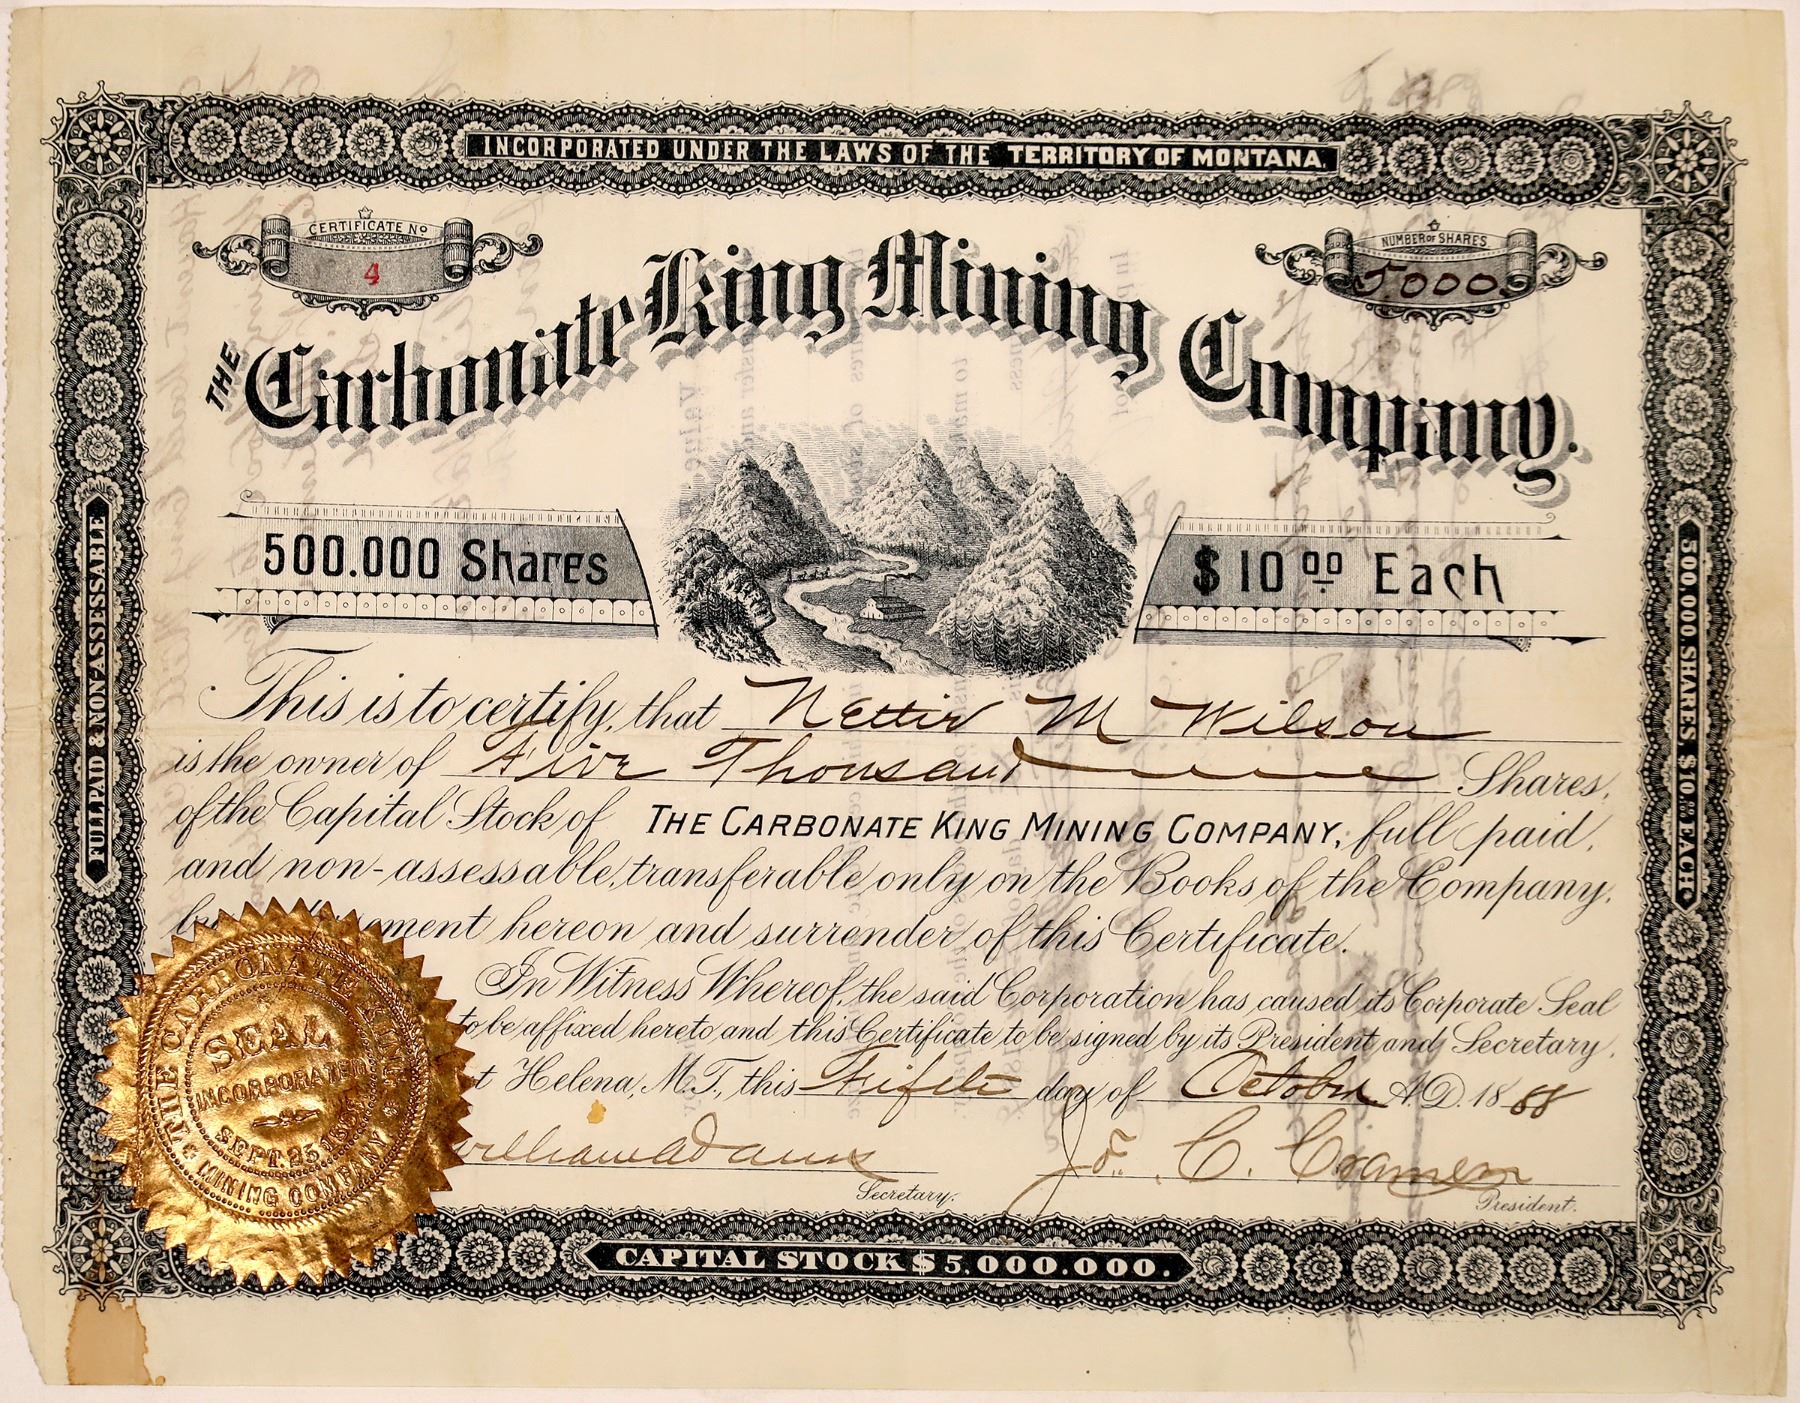 INCORPORATED UNDER THE LAWS OF THE TERRITORY OF MONTANA.
CERTIFICATE No
4
NUMBER OF SHARES.
5000
THE Carbonate King Mining Company.
500.000 Shares
$10 00 Each
FULL PAID & NON-ASSESSABLE
500.000 SHARES $10.00 EACH
This is to certify, that Nettie M Wilson
is the owner of Five Thousand Shares,
of the Capital Stock of THE CARBONATE KING MINING COMPANY; full paid,
and non-assessable, transferable only on the Books of the Company,
ment hereon and surrender of this Certificate.
In Witness Whereof, the said Corporation has caused its Corporate Seal
to be affixed hereto and this Certificate to be signed by its President and Secretary,
t Helena, M.T., this Fifth day of October A.D. 1888
William Adams
Secretary.
C. Cramer
President.
THE CARBONATE KING
MINING COMPANY
SEAL
INCORPORATED
SEPT. 25
CAPITAL STOCK $5.000.000.